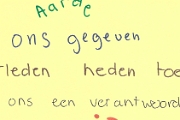 Aarde
ons gegeven
rleden heden toe
ons een verantwoord